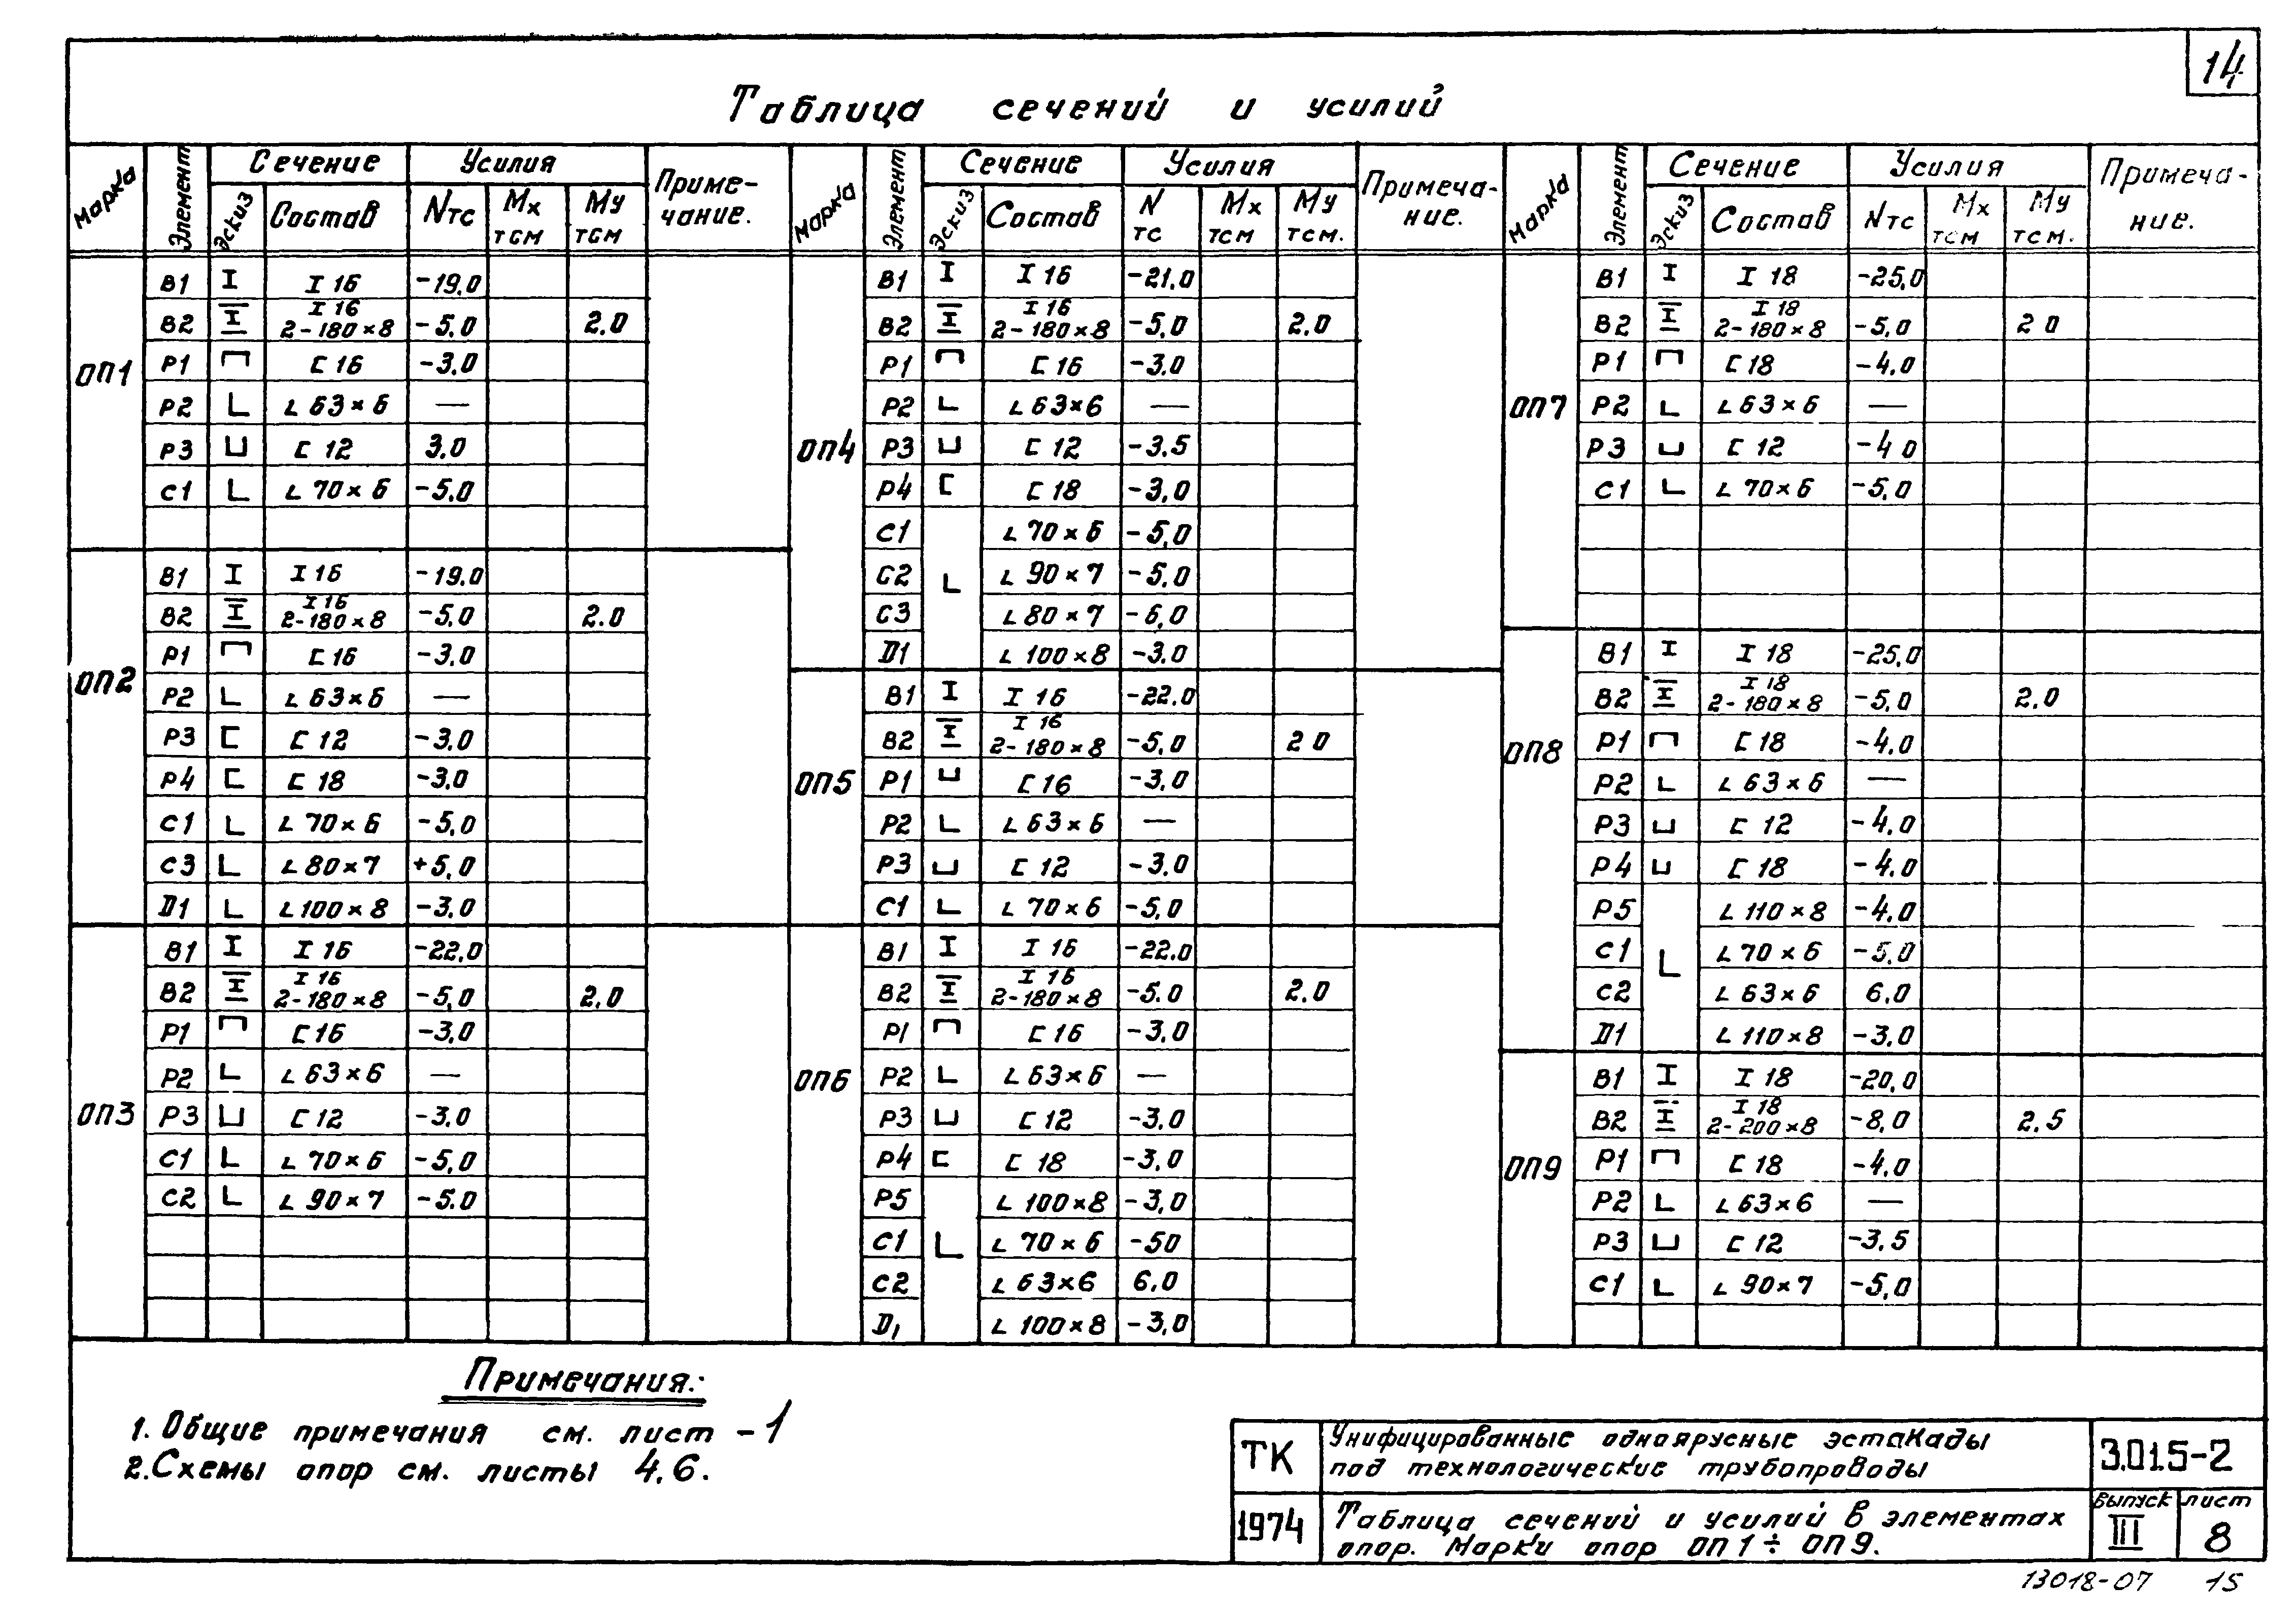 14
Таблица сечений и усилий
Марка Элемент Сечение Усилия Приме-
чание.
Эскиз Состав Nтс Мх тсм Му тсм
ОП1
В1 I 16 -19.0
В2 I 16 2-180×8 -5.0 2.0
Р1 [ 16 -3.0
Р2 L 63×6 —
Р3 [ 12 3.0
С1 L 70×6 -5.0
ОП2
В1 I 16 -19.0
В2 I 16 2-180×8 -5.0 2.0
Р1 [ 16 -3.0
Р2 L 63×6 —
Р3 [ 12 -3.0
Р4 [ 18 -3.0
С1 L 70×6 -5.0
С3 L 80×7 +5.0
D1 L 100×8 -3.0
ОП3
В1 I 16 -22.0
В2 I 16 2-180×8 -5.0 2.0
Р1 [ 16 -3.0
Р2 L 63×6 —
Р3 [ 12 -3.0
С1 L 70×6 -5.0
С2 L 90×7 -5.0
Марка Элемент Сечение Усилия Примеча-
ние.
Эскиз Состав N тс Мх тсм Му тсм.
ОП4
В1 I 16 -21.0
В2 I 16 2-180×8 -5.0 2.0
Р1 [ 16 -3.0
Р2 L 63×6 —
Р3 [ 12 -3.5
Р4 [ 18 -3.0
С1 L 70×6 -5.0
С2 L 90×7 -5.0
С3 L 80×7 -6.0
D1 L 100×8 -3.0
ОП5
В1 I 16 -22.0
В2 I 16 2-180×8 -5.0 2 0
Р1 [ 16 -3.0
Р2 L 63×6 —
Р3 [ 12 -3.0
С1 L 70×6 -5.0
ОП6
В1 I 16 -22.0
В2 I 16 2-180×8 -5.0 2.0
Р1 [ 16 -3.0
Р2 L 63×6 —
Р3 [ 12 -3.0
Р4 [ 18 -3.0
Р5 L 100×8 -3.0
С1 L 70×6 -50
С2 L 63×6 6.0
D1 L 100×8 -3.0
Марка Элемент Сечение Усилия Примеча-
ние.
Эскиз Состав Nтс Мх тсм Му тсм.
ОП7
В1 I 18 -25.0
В2 I 18 2-180×8 -5.0 2 0
Р1 [ 18 -4.0
Р2 L 63×6 —
Р3 [ 12 -4 0
С1 L 70×6 -5.0
ОП8
В1 I 18 -25.0
В2 I 18 2-180×8 -5.0 2.0
Р1 [ 18 -4.0
Р2 L 63×6 —
Р3 [ 12 -4.0
Р4 [ 18 -4.0
Р5 L 110×8 -4.0
С1 L 70×6 -5.0
С2 L 63×6 6.0
D1 L 110×8 -3.0
ОП9
В1 I 18 -20.0
В2 I 18 2-200×8 -8.0 2.5
Р1 [ 18 -4.0
Р2 L 63×6 —
Р3 [ 12 -3.5
С1 L 90×7 -5.0
Примечания:
1. Общие примечания см. лист -1
2. Схемы опор см. листы 4,6.
ТК Унифицированные одноярусные эстакады
под технологические трубопроводы
3.015-2
1974 Таблица сечений и усилий в элементах
опор. Марки опор ОП1÷ОП9.
выпуск III лист 8
13018-07 15